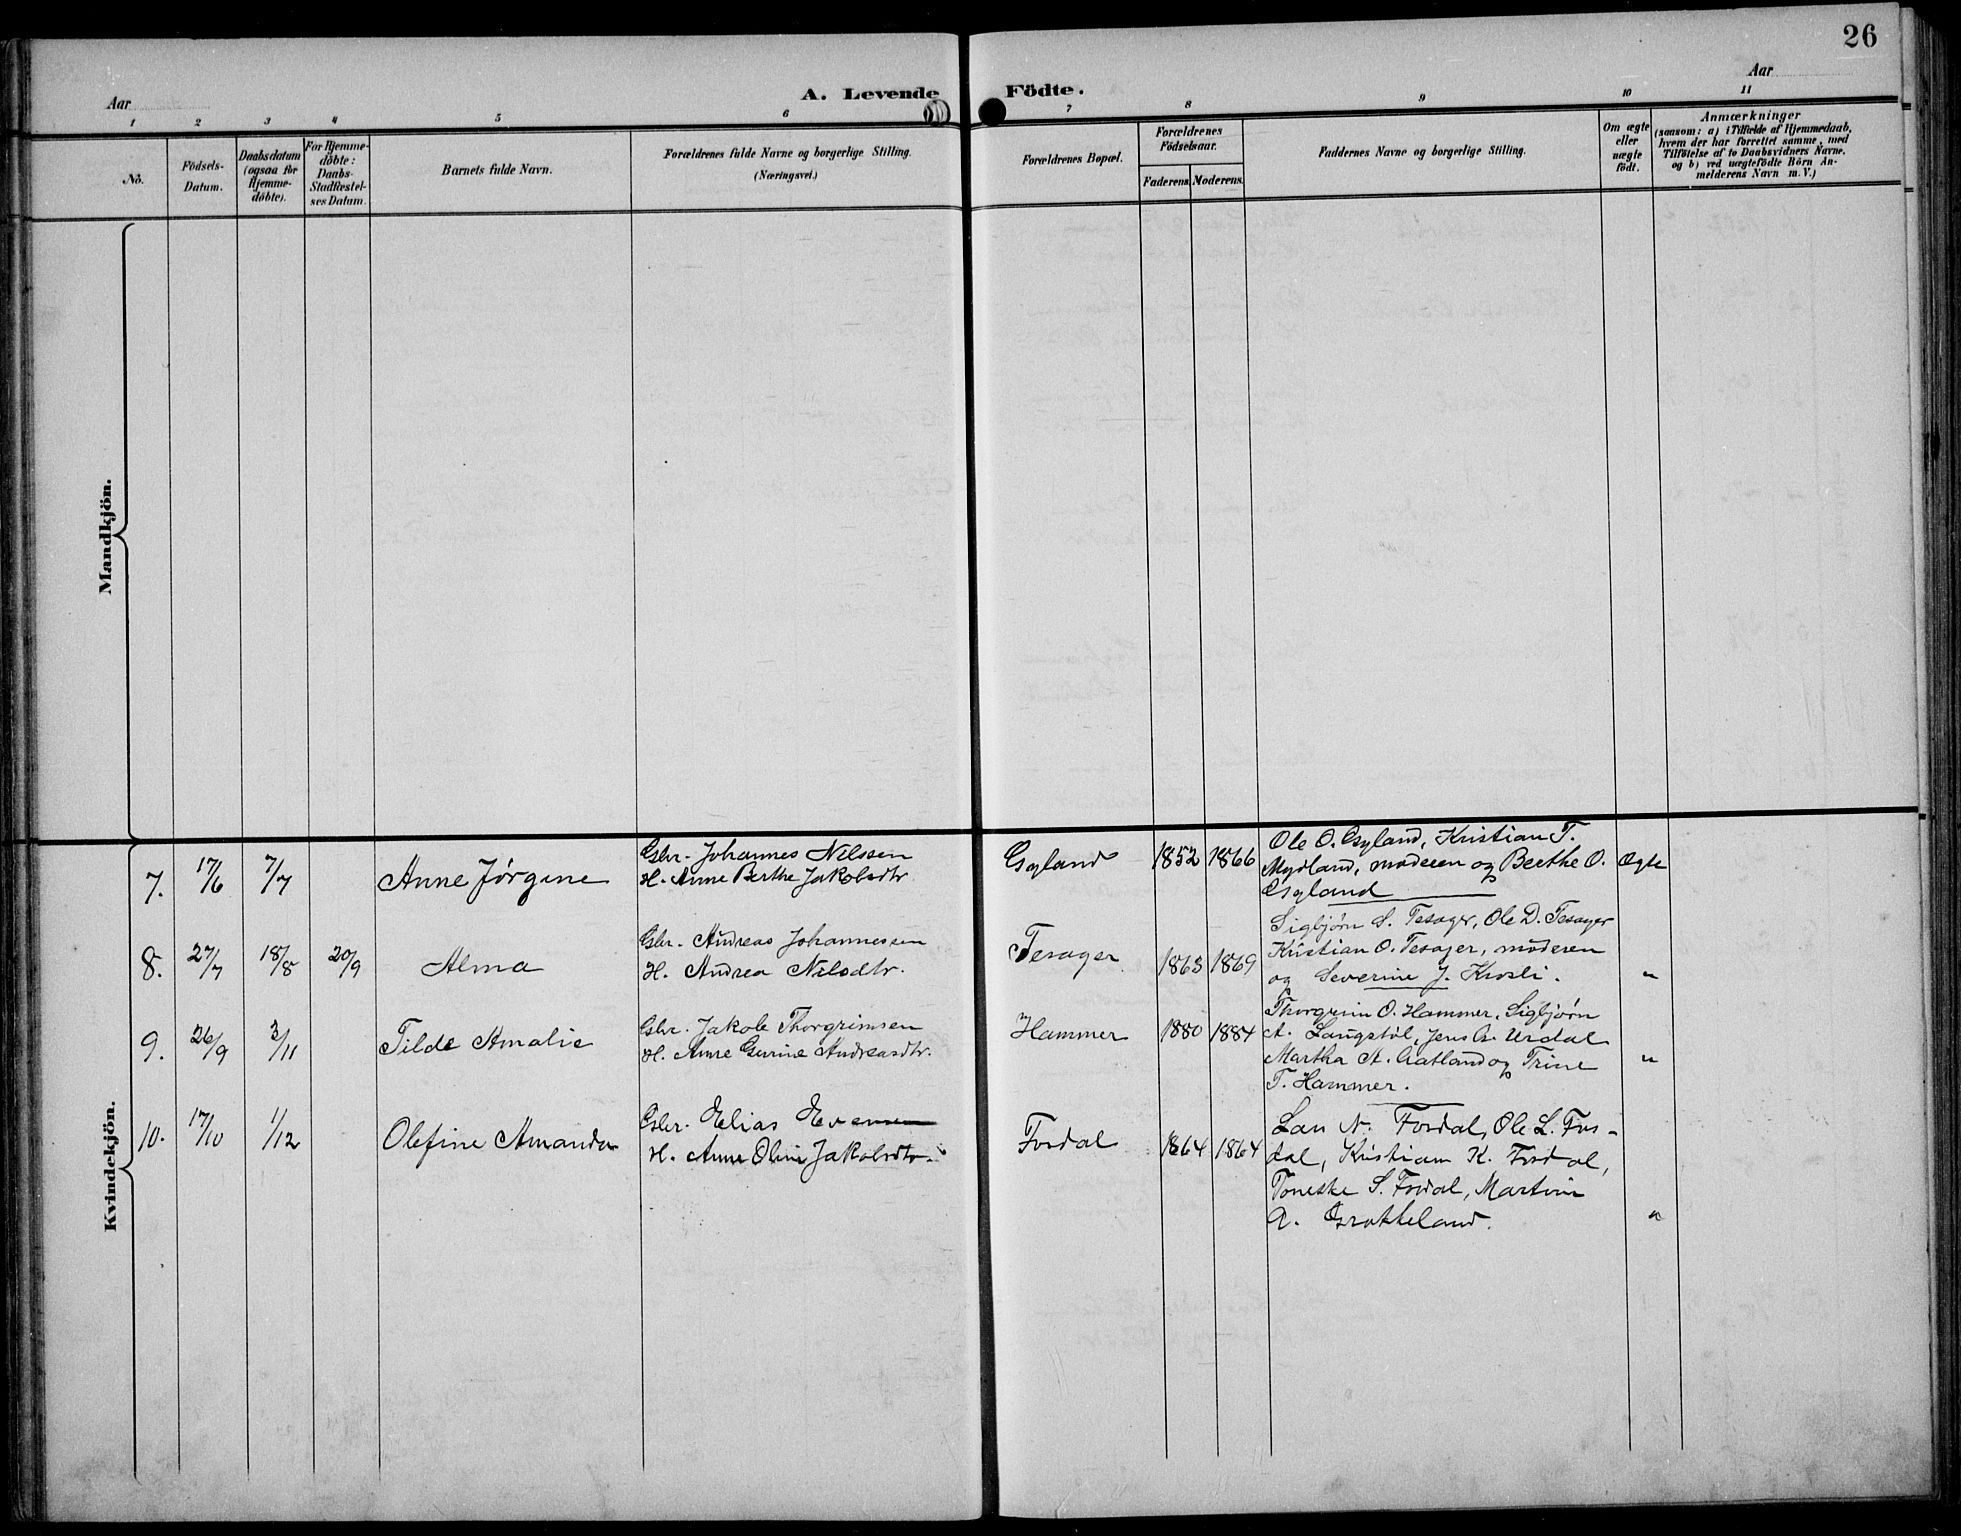 26
Aar
A. Levende
Födte.
Aar
1 2 3 4 5 6 7 8 9 10 11
No.
Födsels-
Datum.
Daabsdatum
(ogsaa for
Hjemme-
döbte).
For Hjemme-
döbte:
Daabs-
Stadfæstel-
ses Datum.
Barnets fulde Navn.
Forældrenes fulde Navne og borgerlige Stilling.
(Næringsvei.)
Forældrenes Bopæl.
Forældrenes
Födselsaar.
Faderens.
Moderens.
Faddernes Navne og borgerlige Stilling.
Om ægte
eller
uægte
födt.
Anmærkninger
(saasom: a) i Tilfælde af Hjemmedaab,
hvem der har forrettet samme, med
Tilföielse af to Daabsvidners Navne,
og b) ved uægtefödte Börn An-
melderens Navn m. V.)
Mandkjön.
Kvindekjön.
7. 17/6 7/7 Anne Jørgine
Gbr. Johannes Nilssen
H. Anne Berthe Jakobsdtr
Gyland 1852 1866
Ole O. Gyland, Kristian T.
Mydland, moderen og Berthe O.
Gyland
Ægte
8. 27/7 18/8 20/9 Alma
Gbr. Andreas Johannessen
H. Andrea Nilsdtr.
Tesager 1863 1869
Sigbjørn S. Tesager, Ole D. Tesager
Kristian O. Tesager, moderen
og Severine J. Krosli.
"
9. 26/9 3/11 Tilde Amalie
Gbr. Jakob Thorgrimsen
H. Anne Gurine Andreasdtr.
Hammer 1880 1884
Thorgrim O. Hammer, Sigbjørn
A. Laugstøl, Jens G. Urdal
Martha A. Gatland og Trine
T. Hammer.
"
10. 17/10 1/12 Olefine Amanda
Gbr. Elias Evensen
H. Anne Oline Jakobsdtr.
Fosdal 1864 1864
Lars N. Fosdal, Ole L. Fos-
dal, Kristian K. Fosdal,
Toneske S. Fosdal, Martin
A. Grøkkeland.
"